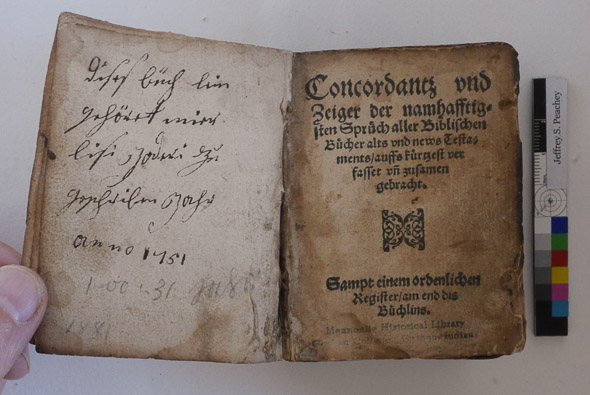 dises büch lin
gehöret mier
lisi
geschriben Jahr
anno 1751
1881
Concordantz vnd
Zeiger der namhafftig-
sten Sprüch aller Biblischen
Bücher alts vnd news Testa-
ments/auffs kürtzest ver
fasset vñ zusamen
gebracht.
Sampt einem ordenlichen
Register/am end dis
Büchlins.
Mennonite Historical Library
Jeffrey S. Peachey